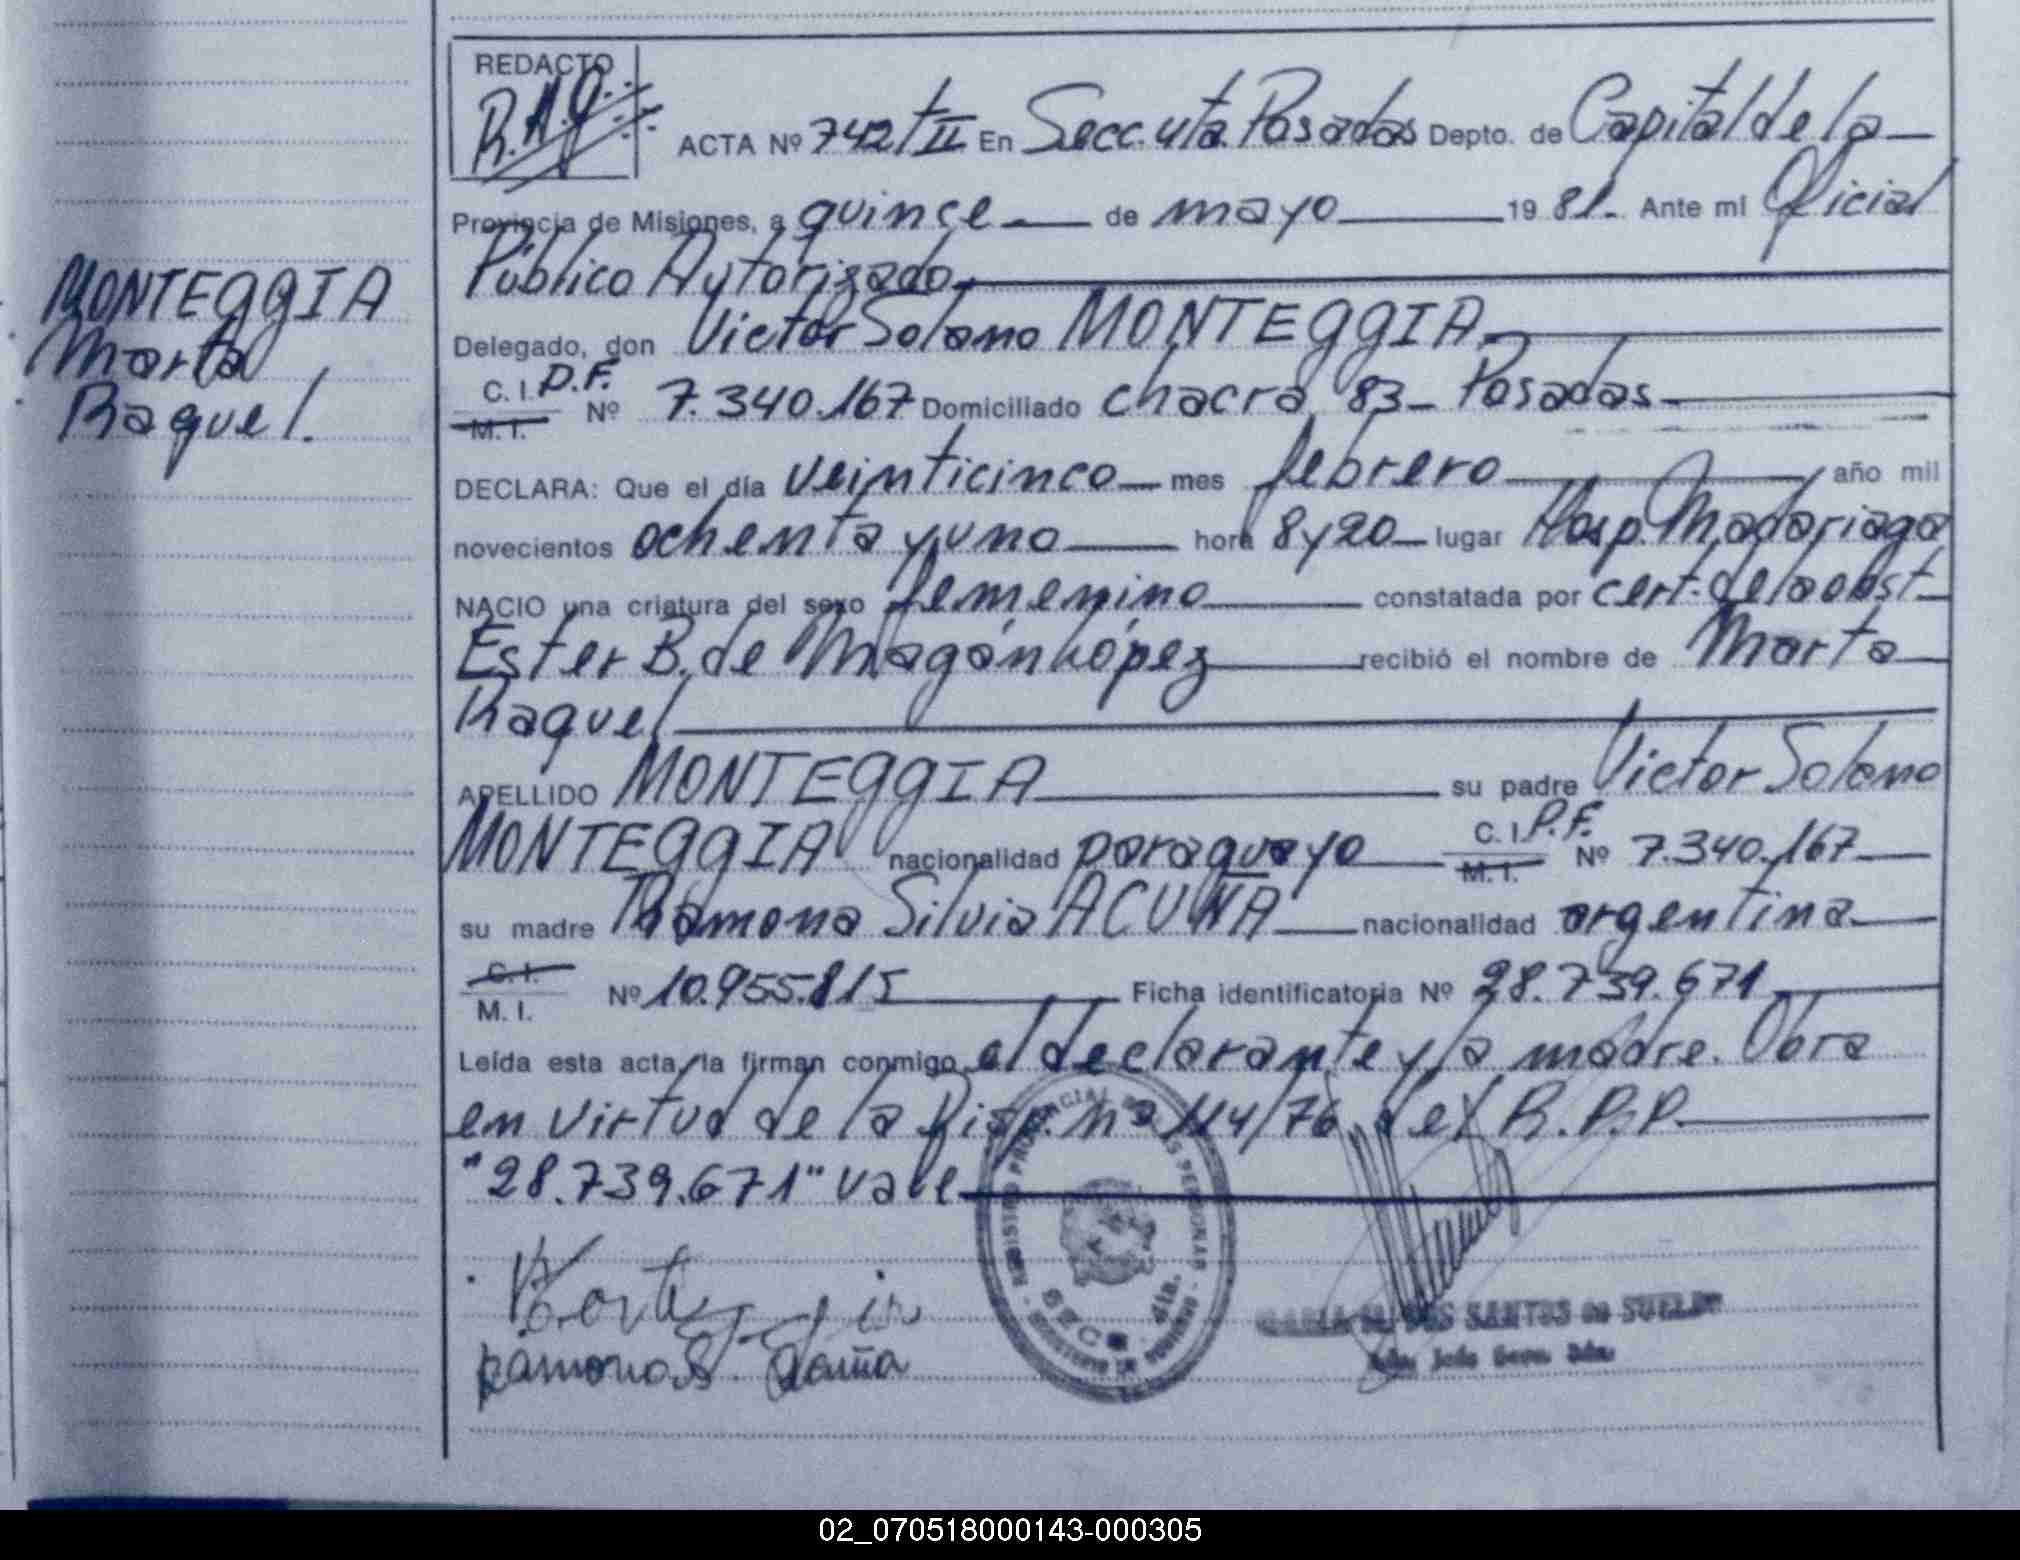 REDACTO
R.A.G.
ACTA Nº 742 T II En Secc. 4ta. Posadas Depto. de Capital de la
Provincia de Misiones, a quince de mayo 1981. Ante mi Oficial
Público Autorizado
Delegado, don Victor Solano MONTEGGIA
C. I. P.F. M. I. Nº 7.340.167 Domiciliado chacra 83 - Posadas
DECLARA: Que el día veinticinco mes febrero año mil
novecientos ochenta y uno hora 8 y 20 lugar Hosp. Madariaga
NACIO una criatura del sexo femenino constatada por cert. de la obst
Ester B. de Magán López recibió el nombre de Marta
Raquel
APELLIDO MONTEGGIA su padre Victor Solano
MONTEGGIA nacionalidad paraguayo C. I. P.F. M. I. Nº 7.340.167
su madre Ramona Silvia ACUÑA nacionalidad argentina
C. I. M. I. Nº 10.955.815 Ficha identificatoria Nº 28.739.671
Leída esta acta, la firman conmigo el declarante y la madre. Obra
en virtud de la Disp. nº 114/76 del R.P.P.
"28.739.671" vale
MONTEGGIA
Marta
Raquel.
Ramona S. Acuña
DOS SANTOS de SUELDO
02_070518000143-000305